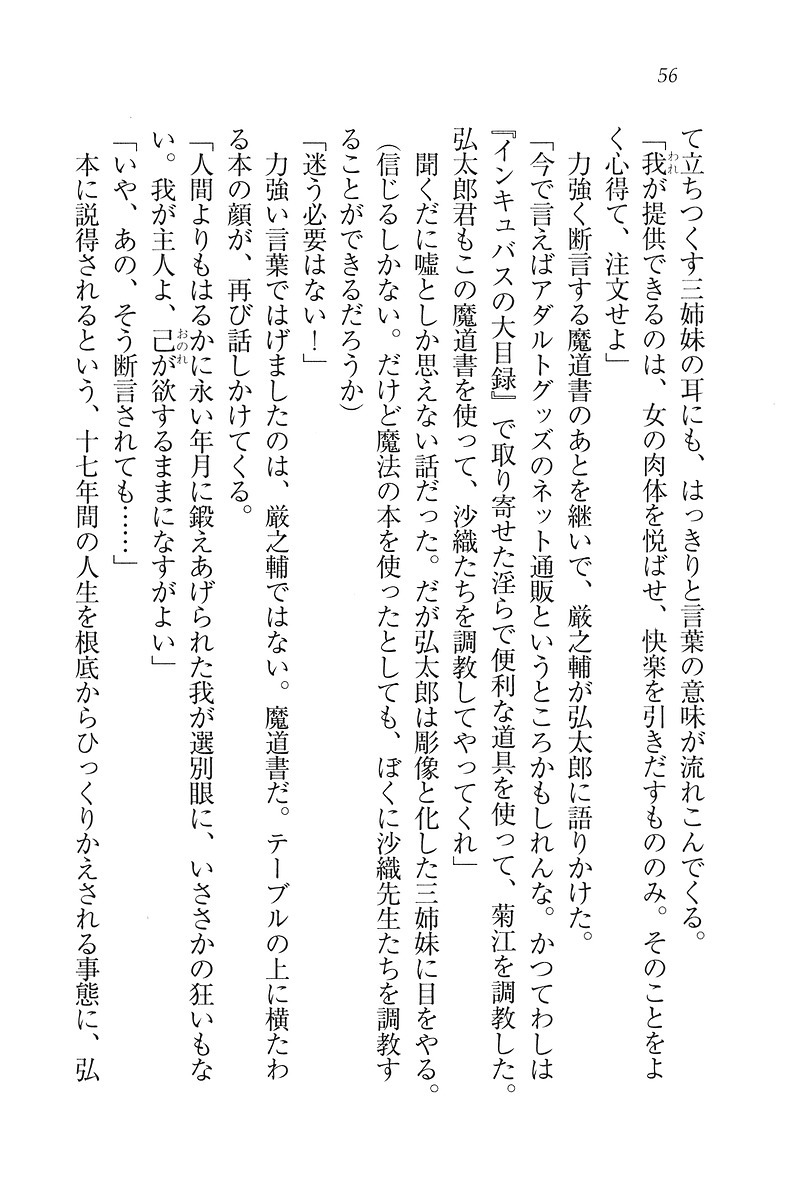 56
て立ちつくす三姉妹の耳にも、はっきりと言葉の意味が流れこんでくる。
「我が提供できるのは、女の肉体を悦ばせ、快楽を引きだすもののみ。そのことをよ
く心得て、注文せよ」
力強く断言する魔道書のあとを継いで、厳之輔が弘太郎に語りかけた。
「今で言えばアダルトグッズのネット通販というところかもしれんな。かつてわしは
『インキュバスの大目録』で取り寄せた淫らで便利な道具を使って、菊江を調教した。
弘太郎君もこの魔道書を使って、沙織たちを調教してやってくれ」
聞くだに嘘としか思えない話だった。だが弘太郎は彫像と化した三姉妹に目をやる。
(信じるしかない。だけど魔法の本を使ったとしても、ぼくに沙織先生たちを調教す
ることができるだろうか)
「迷う必要はない！」
力強い言葉ではげましたのは、厳之輔ではない。魔道書だ。テーブルの上に横たわ
る本の顔が、再び話しかけてくる。
「人間よりもはるかに永い年月に鍛えあげられた我が選別眼に、いささかの狂いもな
い。我が主人よ、己が欲するままになすがよい」
「いや、あの、そう断言されても……」
本に説得されるという、十七年間の人生を根底からひっくりかえされる事態に、弘
われ
おのれ